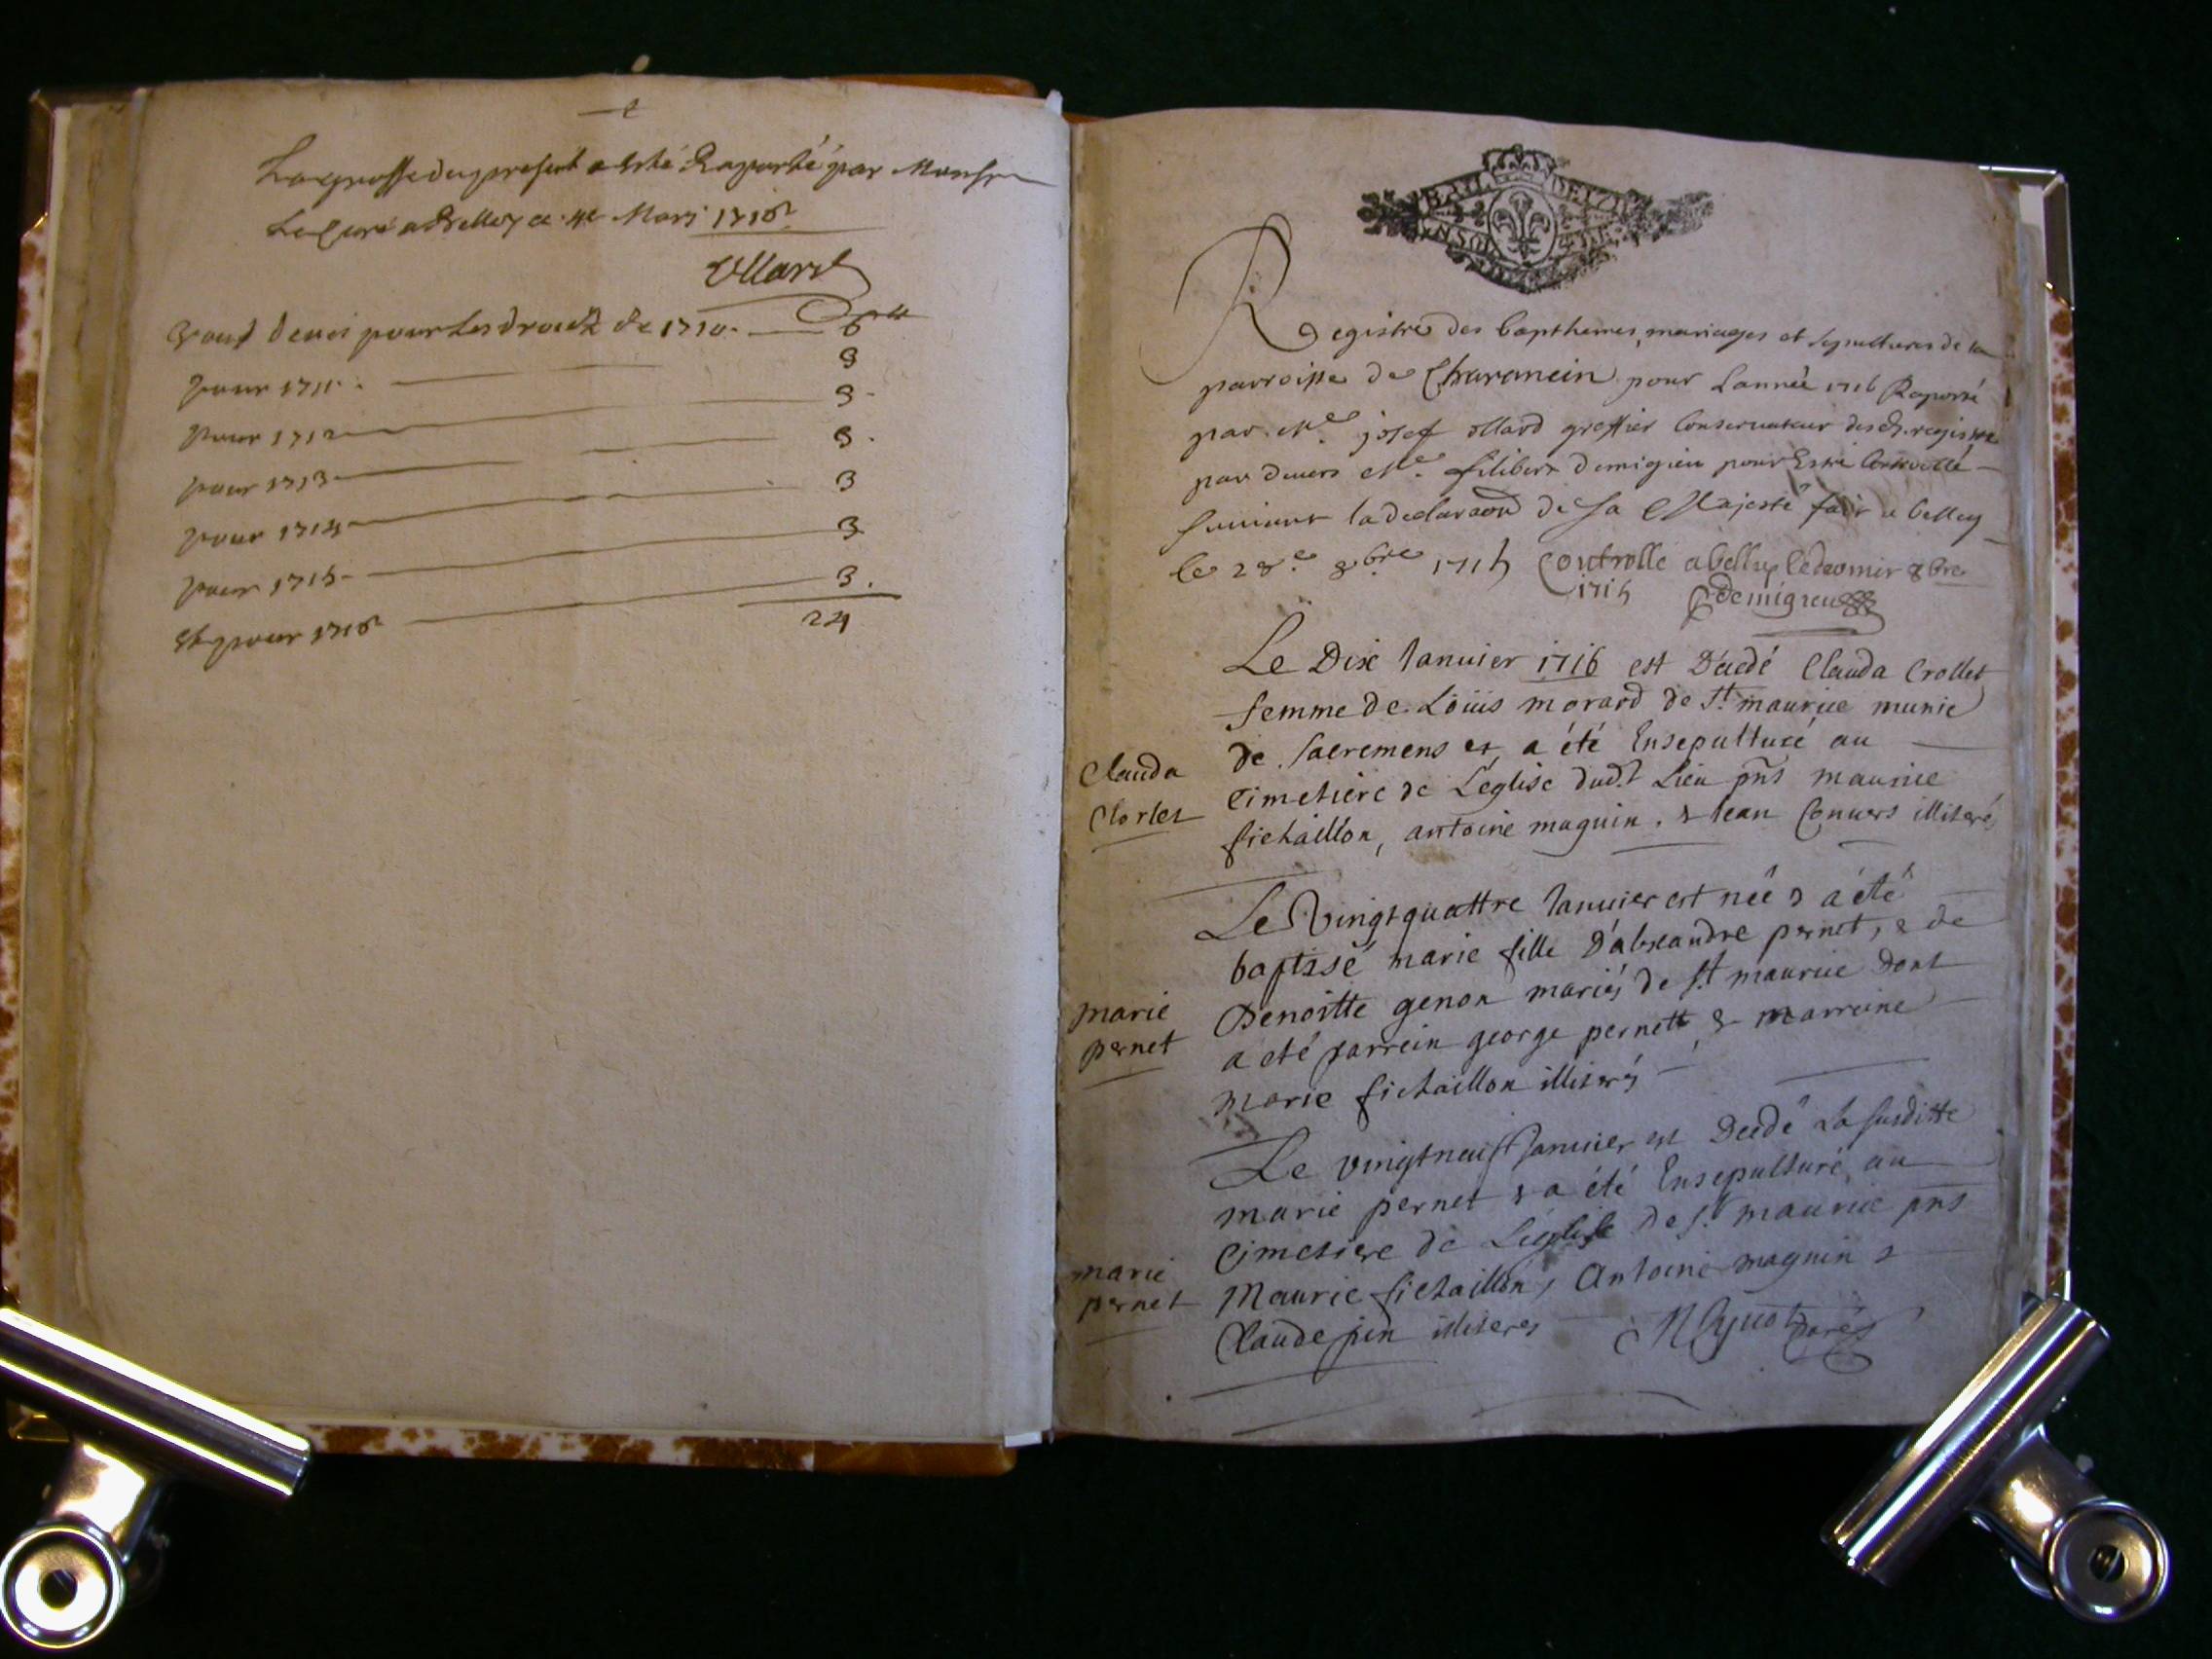 La grosse du present a esté Raporté par Monsr
Le Curé a Belley ce 4e Mars 1716
Ollard
pour les droictz de 1710. 6
pour 1711. 3
pour 1712 3
pour 1713 3.
pour 1714 3
pour 1715 3
Et pour 1716 3.
24
Registre des bapthemes, mariages et sepultures de la
parroisse de Charancin pour Lannée 1716 Raporté
par Me. josef ollard greffier Conservateur des d. registres
par devers Me. filibert demigieu pour Estre Controllé
suivant la declaraon de sa Majesté fait a belley
le 28e. 8bre 1715 Controlle a belley le 8bre
1715 demigieu
Le Dix Januier 1716 est Décédé Clauda Crollet
femme de Loüis morard de St. maurice munie
de Sacremens et a été Ensepulturé au
Clauda Cimetiere de L'église dudt. Lieu pñs maurice
Clorlet fichaillon, antoine maguin. & Jean Convers illiterés
Le Vingt quattre Januier est née & a été
baptisé marie fille D'alexandre pernet, & de
marie Benoitte genon mariés de St. maurice Dont
pernet a eté parrein george pernett, & marreine
marie fichaillon illiterés
Le vingtneuf Januier est Decedé La susditte
marie pernet & a été Ensepulturé au
Cimetiere de L'église de St. maurice pns
marie Maurice fichaillon, Antoine magnin &
pernet Claude pin illiteres